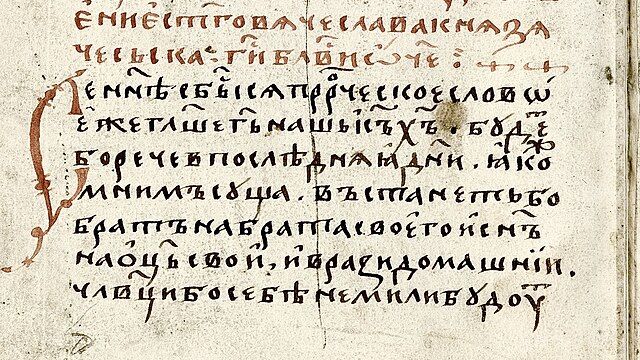 ѣніе ст҃го вѧчеслава кнѧзѧ
чесьска. г҃и бл҃ви ѿче ⁘
Се нн҃ѣ сбы́сѧ прⷪ҇рческое словѡ
еже гл҃ше г҃ь нашь і҃съ х҃ъ. будеⷮ
бо рече в послѣднѧѧ дн҃и. ꙗкоⷤ
мнимъ суща. въстанеть бо
братъ на брата своего и сн҃ъ
на ѻц҃ь свои, и врази домашніи.
чл҃вци бо себѣ не мили будоуⷮ